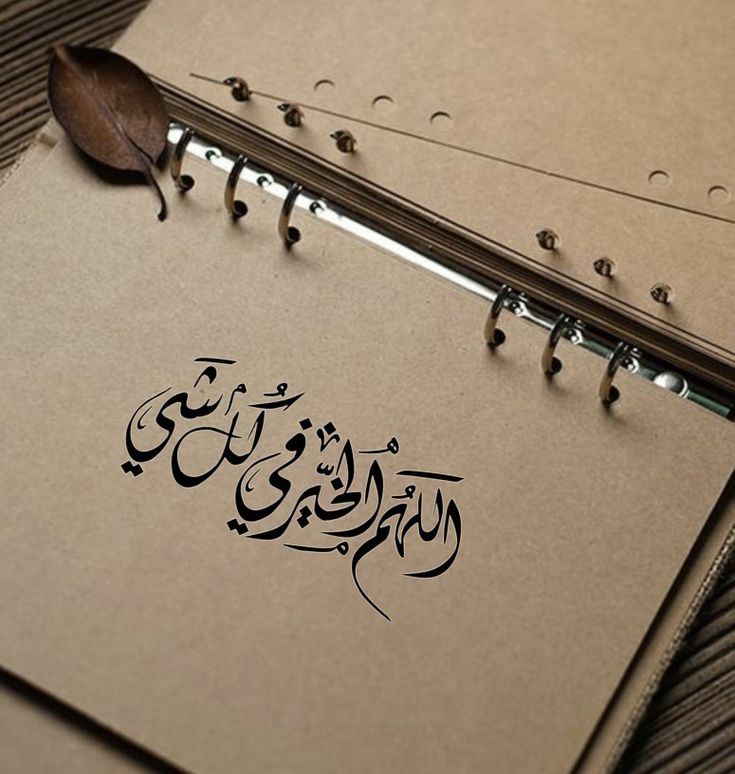 اللهم الخير في كل شي